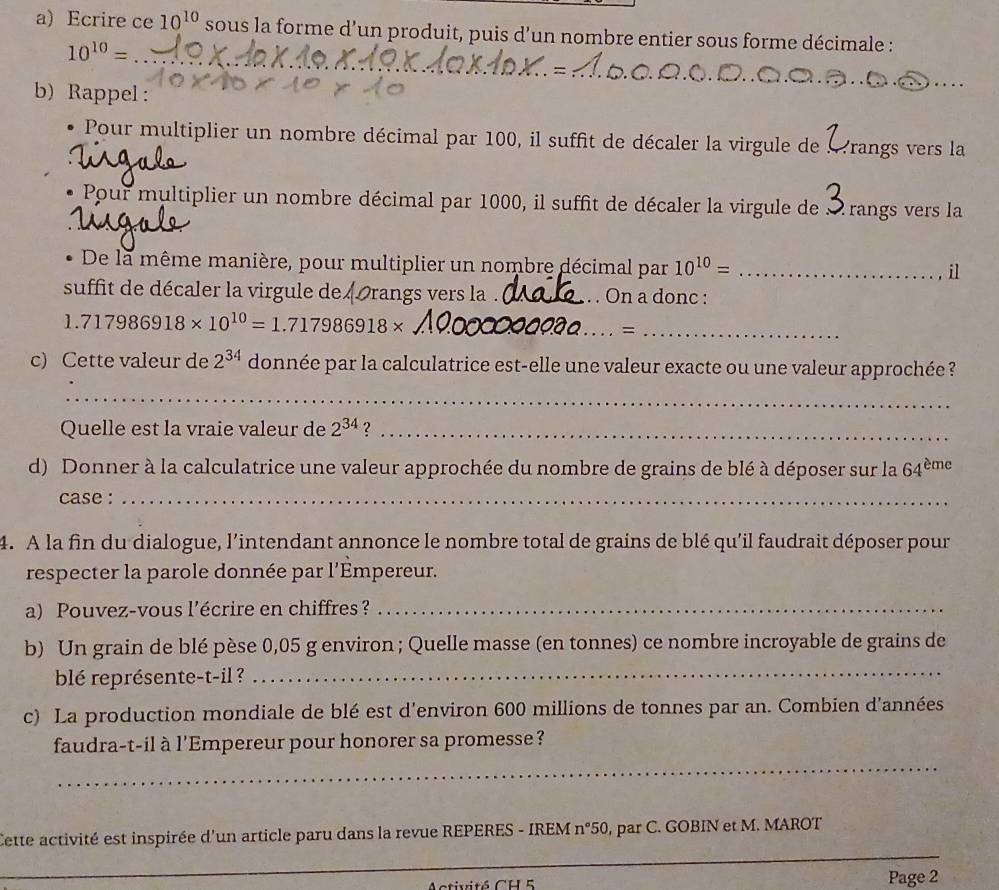 a) Ecrire ce 10¹⁰ sous la forme d'un produit, puis d'un nombre entier sous forme décimale :
10¹⁰ = 10 X 10 X 10 X 10 X 10 X 10 X = 10000000000
10 X 10 X 10 X 10
b) Rappel :
• Pour multiplier un nombre décimal par 100, il suffit de décaler la virgule de 2 rangs vers la
• Pour multiplier un nombre décimal par 1000, il suffit de décaler la virgule de 3 rangs vers la
• De la même manière, pour multiplier un nombre décimal par 10¹⁰ = ...................., il
suffit de décaler la virgule de 10 rangs vers la . On a donc :
1.717986918 × 10¹⁰ = 1.717986918 × 10000000000 .... = ....................
c) Cette valeur de 2³⁴ donnée par la calculatrice est-elle une valeur exacte ou une valeur approchée ?
Quelle est la vraie valeur de 2³⁴ ? ....................
d) Donner à la calculatrice une valeur approchée du nombre de grains de blé à déposer sur la 64ème
case : ....................
4. A la fin du dialogue, l'intendant annonce le nombre total de grains de blé qu'il faudrait déposer pour
respecter la parole donnée par l'Èmpereur.
a) Pouvez-vous l'écrire en chiffres ? ....................
b) Un grain de blé pèse 0,05 g environ ; Quelle masse (en tonnes) ce nombre incroyable de grains de
blé représente-t-il ? ....................
c) La production mondiale de blé est d'environ 600 millions de tonnes par an. Combien d'années
faudra-t-il à l'Empereur pour honorer sa promesse ?
Cette activité est inspirée d'un article paru dans la revue REPERES - IREM n°50, par C. GOBIN et M. MAROT
Activité CH 5
Page 2